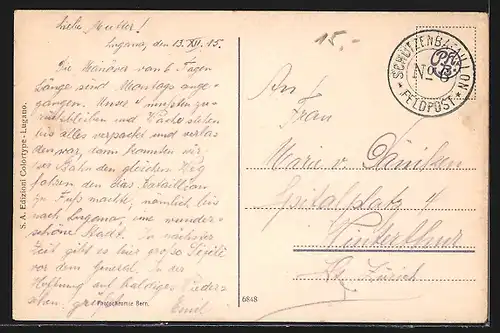 Liebe Mutter!
Lugano, den 13. XII. 15.
Die Manöver von 6 Tagen
Länge sind Montags ange-
gangen. Unser 4 mussten zu-
rückbleiben und Wache stehen
bis alles verpackt und verlas
den war, dann konnten wir
per Bahn den gleichen Weg
fahren den das Bataillon
zu Fuss machte, nämlich bis
nach Lugano, eine wunder-
schöne Stadt. In nächster
Zeit gibt es hier grosse
vor dem General. In der
Hoffnung auf baldiges Wieder-
sehen grüsst Emil
S. A. Edizioni Colortype - Lugano.
Photochromie Bern.
6848
15.-
SCHÜTZENBATAILLON
No 6
* FELDPOST *
An
Frau
Marie v.
Spitalplatz 4
Winterthur
Kt. Zürich